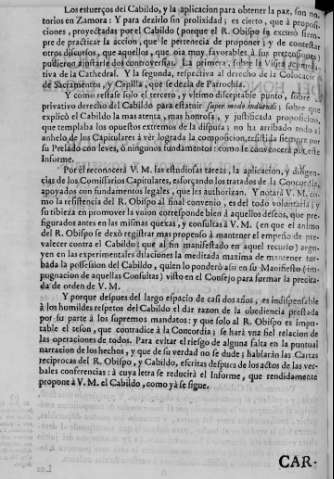 Los esfuerços del Cabildo, y la aplicacion para obtener la paz, son no-
torios en Zamora: Y para dezirlo sin prolixidad; es cierto, que à proposi-
ciones, proyectadas por el Cabildo (porque el R. Obispo se escusò siem-
pre de practicar la accion, que le pertenecia de proponer) y de contestar
otros discursos, que aquellos, que oìa muy favorables à sus pretensiones)
pudieron ajustarse dos controversias. La primera, sobre la Visita
tiva de la Cathedral. Y la segunda, respectiva al derecho de la Colocacion
de Sacramentos, y Capilla, que se dezia de Parrochia.
Y como restasse solo el tercero, y vltimo disceptable punto, sobre
privativo derecho del Cabildo para estatuir super modo induendi; sobre que
explicò el Cabildo la mas atenta, mas honrosa, y justificada proposicion,
que templaba los opuestos extremos de la disputa; no ha arribado todo el
anhelo de los Capitulares à vèr lograda la composicion, resistida siempre por
su Prelado con leves, ò ningunos fundamentos: como se convencerà por este
Informe.
Por èl reconocerà V. M. las estudiosas tareas, la aplicacion, y diligen-
cias de los Comissarios Capitulares, esforçando los tratados de la Concordia,
apoyados con fundamentos legales, que les authorizan. Y notarà V. M. co-
mo la resistencia del R. Obispo al final convenio, es del todo voluntaria; y
su tibieza en promover la vnion corresponde bien à aquellos deseos, que pre-
figurados antes en las mismas quexas, y consultas à V. M. (en que el animo
del R. Obispo se dexò registrar mas propenso à mantener el empeño de pre-
valecer contra el Cabildo; que al fin manifestado en aquel recurso) argu-
yen en las experimentales dilaciones la meditada maxima de mantener tur-
bada la possession del Cabildo, quien lo ponderò assi en su Manifiesto (im-
pugnacion de aquellas Consultas) visto en el Consejo para formar la precita-
da de orden de V. M.
Y porque despues del largo espacio de casi dos años, es indispensable
à los humildes respetos del Cabildo el dàr razon de la obediencia prestada
por su parte à los supremos mandatos: y que solo al R. Obispo es impu-
table el teson, que contradice à la Concordia; se harà vna fiel relacion de
las operaciones de todos. Para evitar el riesgo de alguna falta en la puntual
narracion de los hechos, y que de su verdad no se dude; hablaràn las Cartas
reciprocas del R. Obispo, y Cabildo, escritas despues de los actos de las ver-
bales conferencias: à cuya letra se reducirà el Informe, que rendidamente
propone à V. M. el Cabildo, como yà se sigue.
CAR-